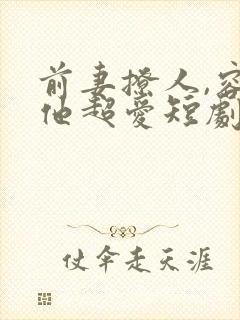 前妻撩人,容
他超爱短剧
仗伞走天涯